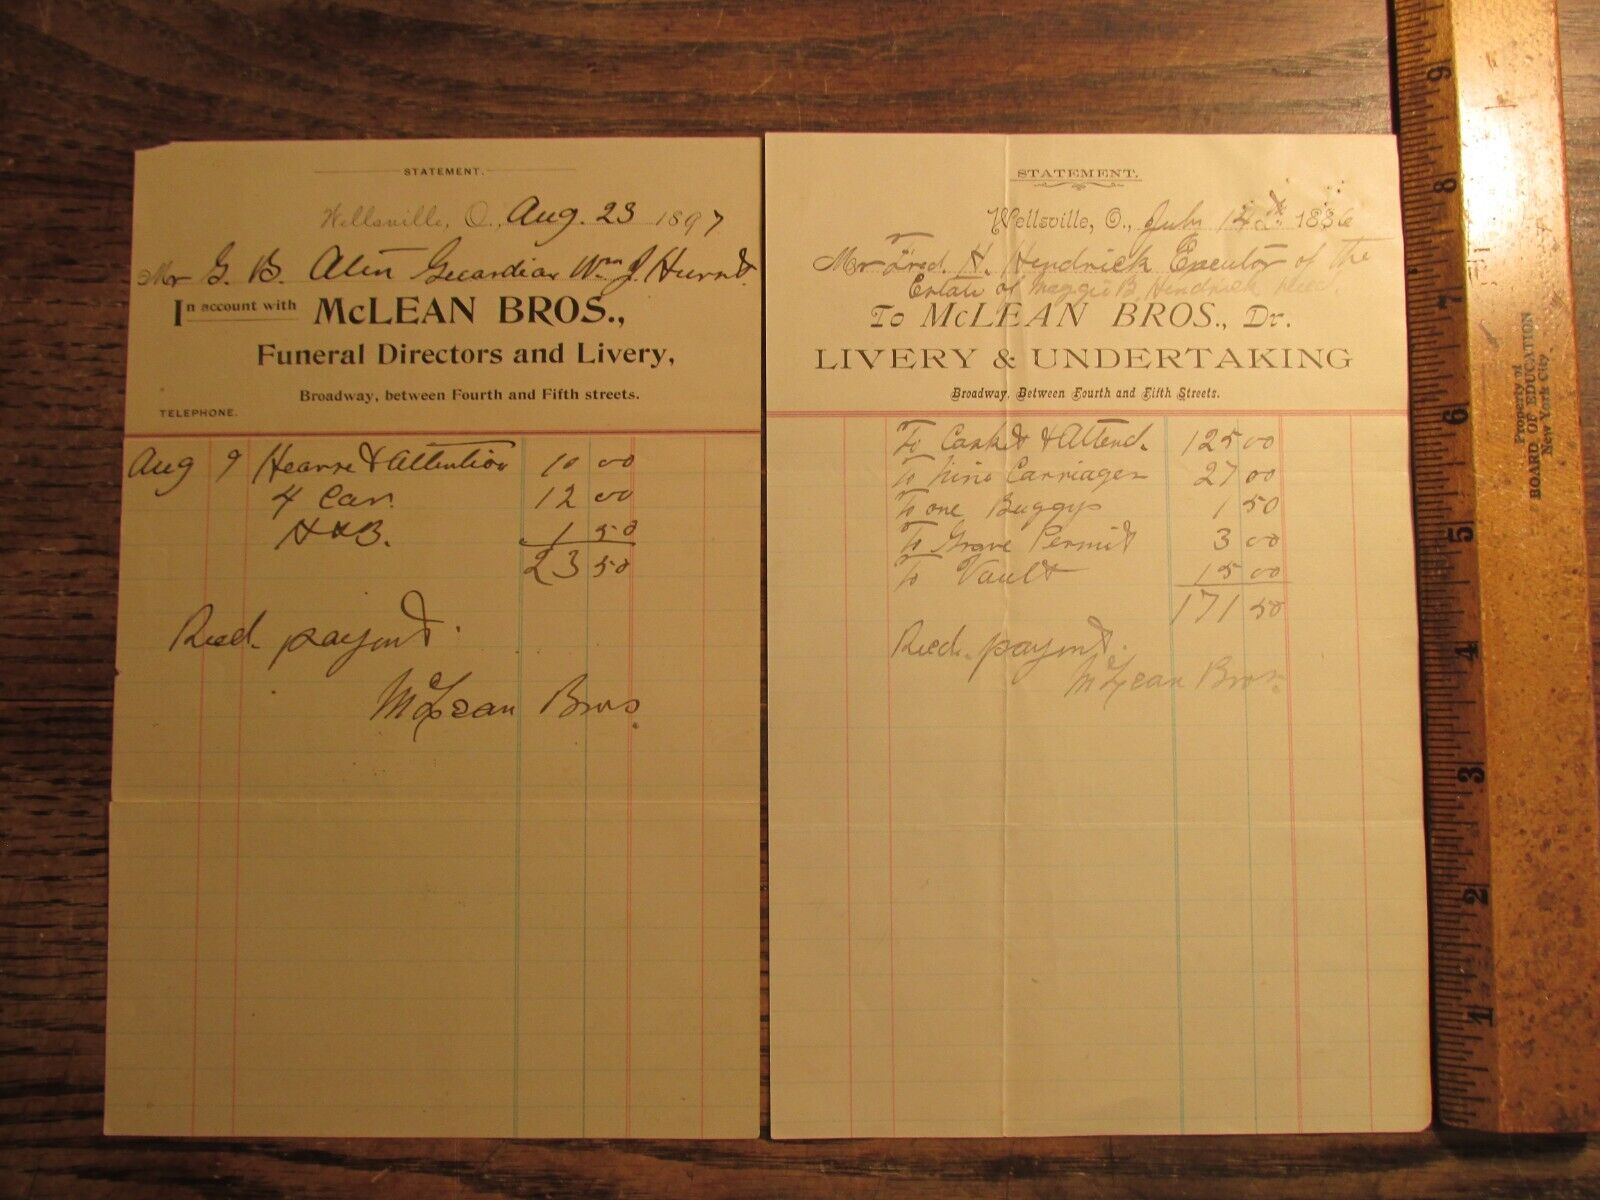 STATEMENT.
Wellsville, O., Aug. 23 1897
Mr G. B. Guardian Wm J.
In account with McLEAN BROS.,
Funeral Directors and Livery,
Broadway, between Fourth and Fifth streets.
TELEPHONE.
Aug 9 Hearse & Attention 10 00
4 Car. 12 00
H & B. 1 50
23 50
Recd. payment.
McLean Bros.
STATEMENT.
Wellsville, O., July 1896
Mr Fred. H. Hendrick Executor of the
Estate of Maggie B. Hendrick decd.
To McLEAN BROS., Dr.
LIVERY & UNDERTAKING
Broadway, Between Fourth and Fifth Streets.
To Casket & Attend. 125 00
To Nine Carriages 27 00
To one Buggys 1 50
To Grave Permit 3 00
To Vault 15 00
171 50
Recd. payment.
McLean Bros.
9
8
7
6
5
4
3
2
1
Property of
BOARD OF EDUCATION
New York City